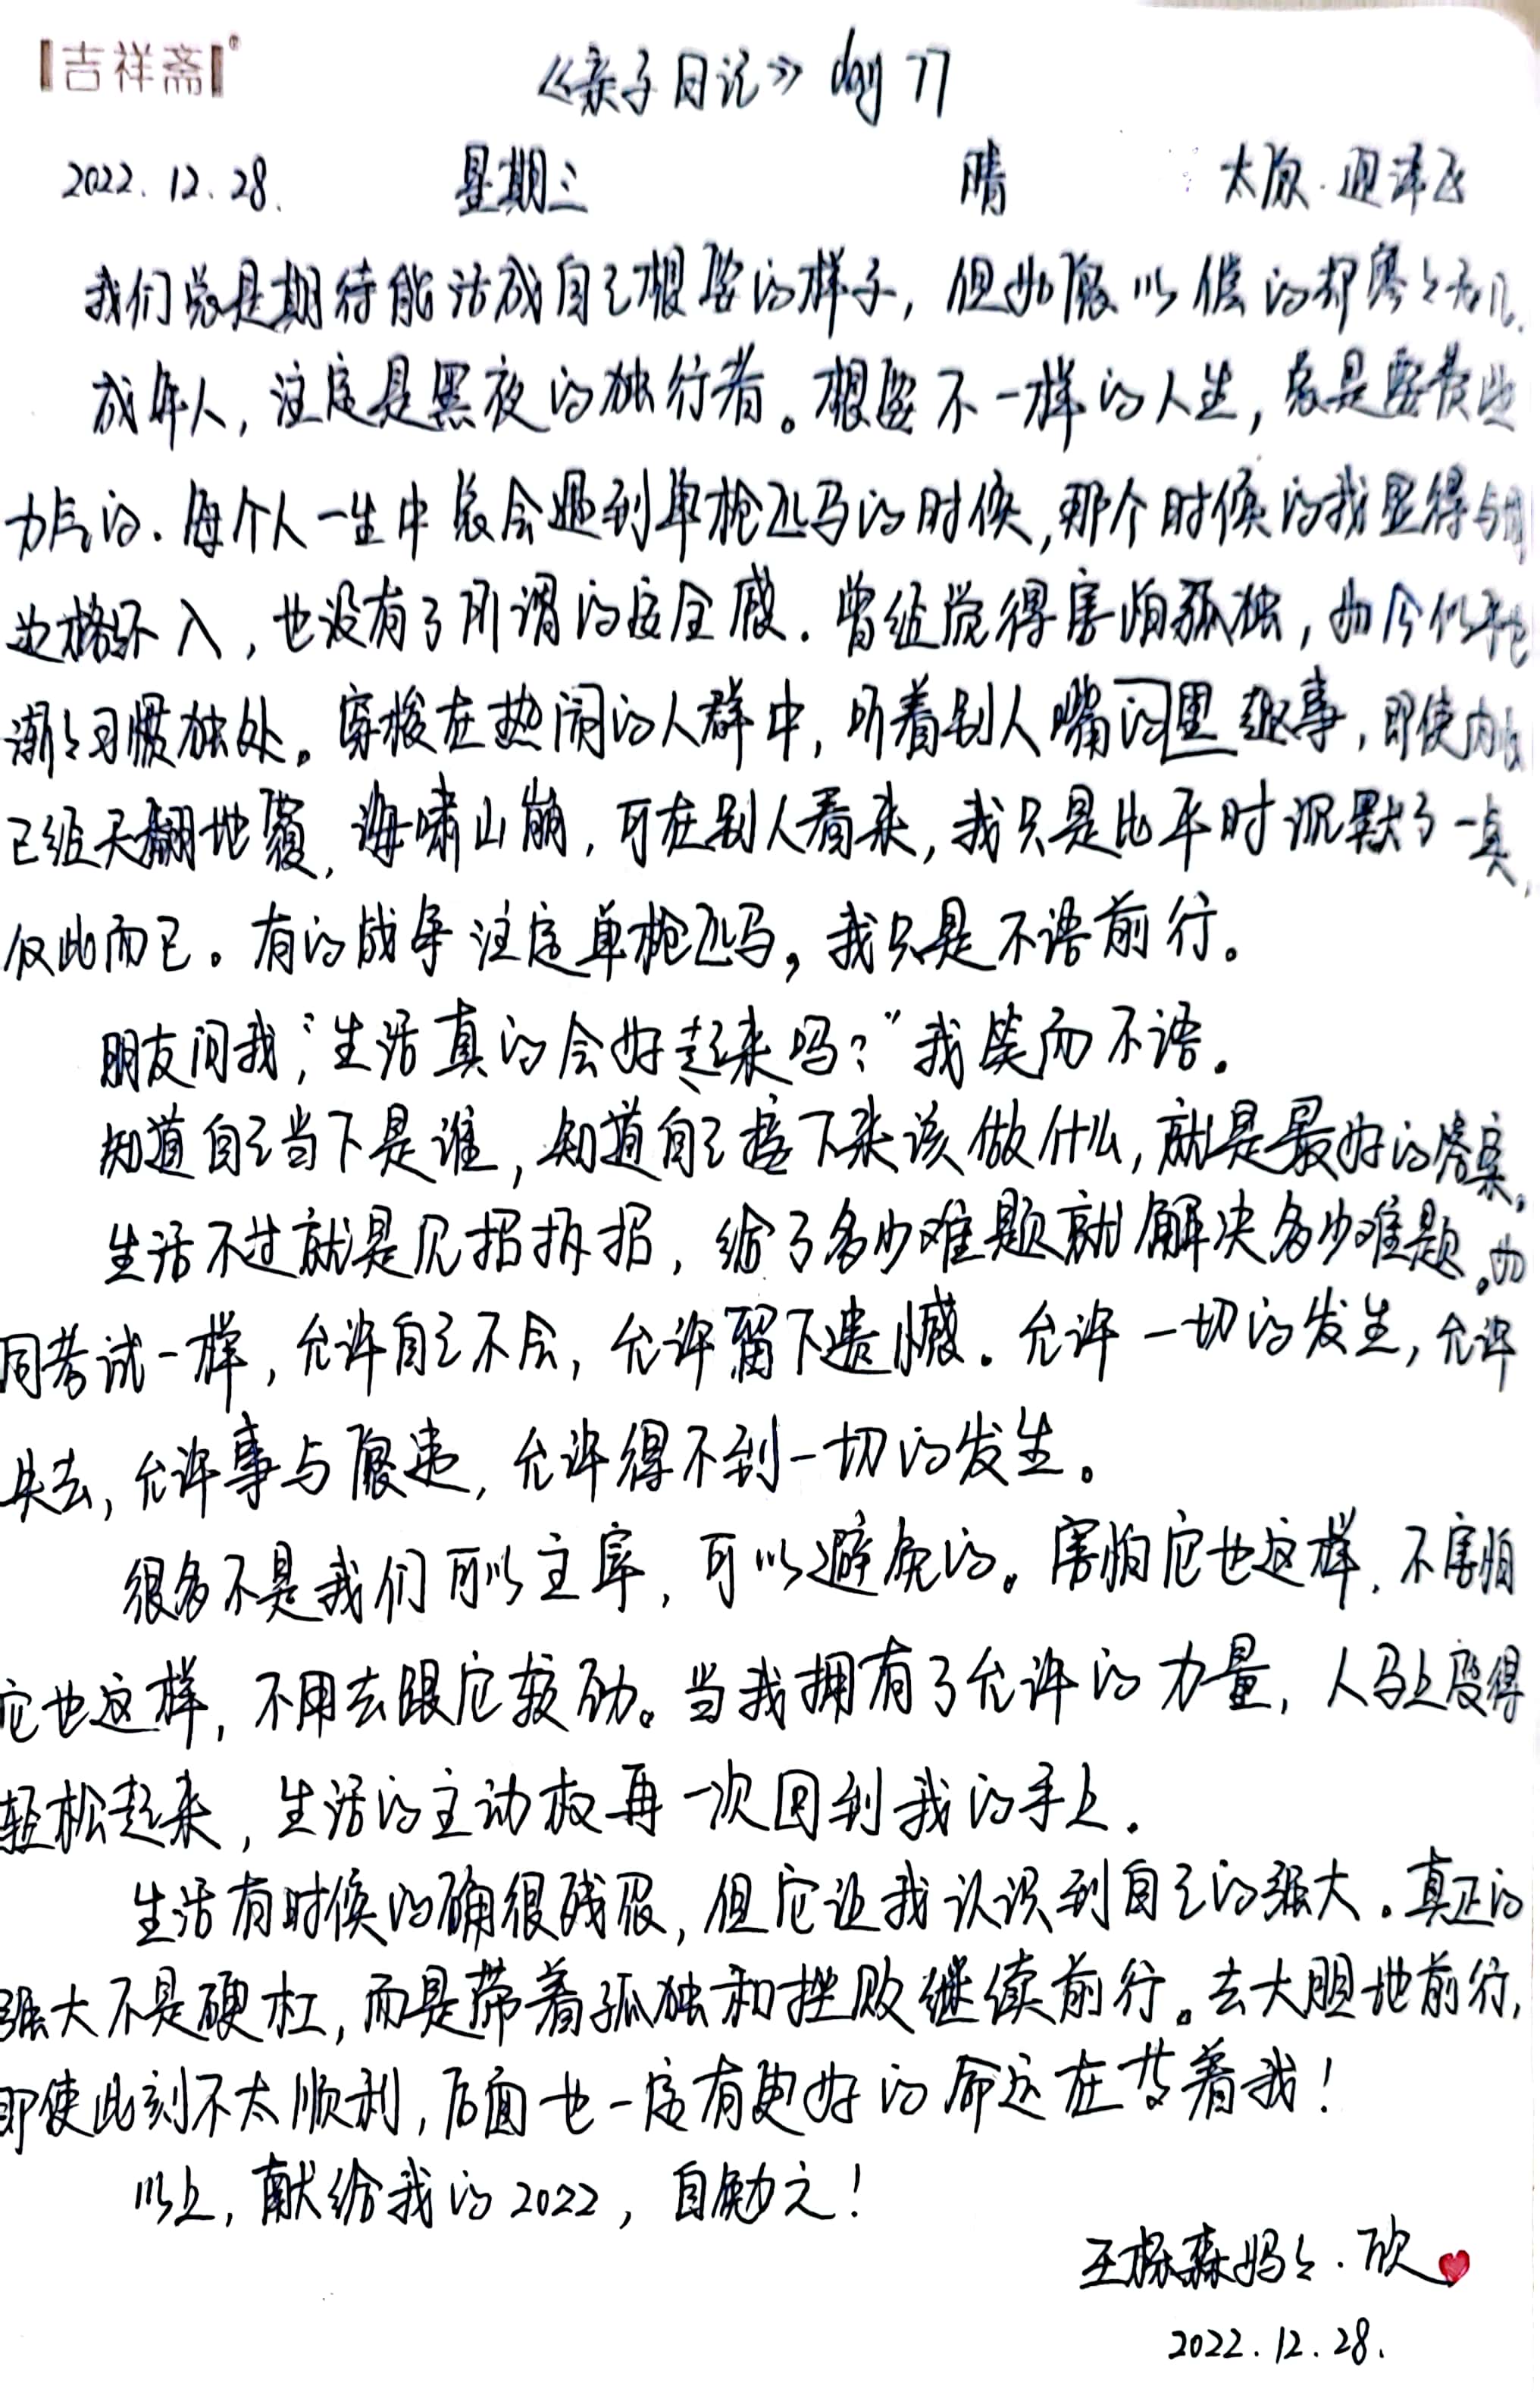 吉祥斋®
《亲子日记》day 77
2022.12.28. 星期三 晴 太原·迎泽区
我们总是期待能活成自己想要的样子，但如愿以偿的却寥寥无几.
成年人，注定是黑夜的独行者。想要不一样的人生，总是要费些
力气的.每个人一生中总会遇到单枪匹马的时候,那个时候的我显得与周
边格格不入，也没有了所谓的安全感.曾经觉得害怕孤独，如今似乎也
渐渐习惯独处。穿梭在热闹的人群中，听着别人嘴的里趣事，即使内心
已经天翻地覆，海啸山崩，可在别人看来，我只是比平时沉默了一点，
仅此而已。有的战争注定单枪匹马，我只是不语前行。
朋友问我；“生活真的会好起来吗？”我笑而不语.
知道自己当下是谁，知道自己接下来该做什么，就是最好的答案。
生活不过就是见招拆招，给了多少难题就解决多少难题。如
同考试一样，允许自己不会，允许留下遗憾.允许一切的发生，允许
失去，允许事与愿违，允许得不到一切的发生。
很多不是我们可以主宰，可以避免的。害怕它也这样，不害怕
它也这样，不用去跟它较劲。当我拥有了允许的力量，人马上变得
轻松起来，生活的主动权再一次回到我的手上.
生活有时候的确很残忍，但它让我认识到自己的强大.真正的
强大不是硬杠，而是带着孤独和挫败继续前行。去大胆地前行，
即使此刻不太顺利，后面也一定有更好的命运在等着我！
以上，献给我的2022，自勉之！
王栎森妈妈.欣
2022.12.28.